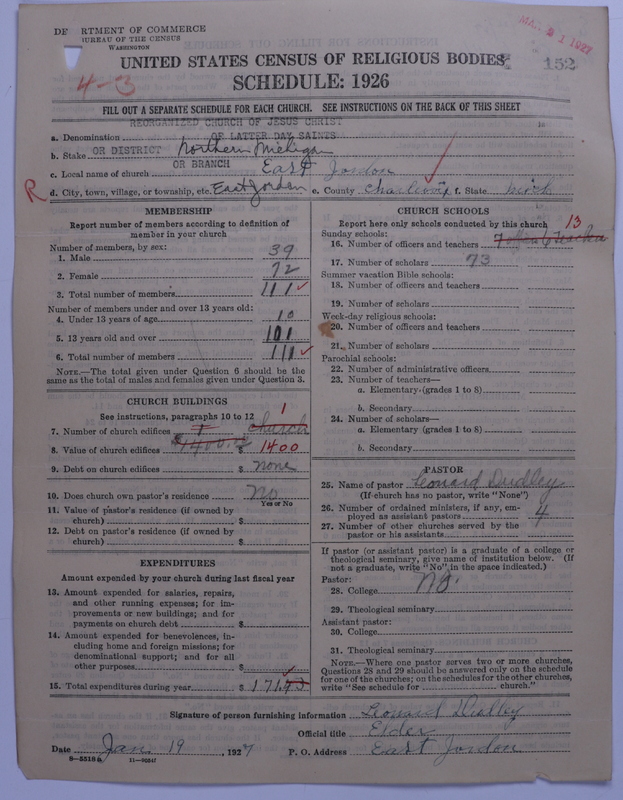 DE RTMENT OF COMMERCE
BUREAU OF THE CENSUS
WASHINGTON
UNITED STATES CENSUS OF RELIGIOUS BODIES
152
4-3
SCHEDULE: 1926
FILL OUT A SEPARATE SCHEDULE FOR EACH CHURCH. SEE INSTRUCTIONS ON THE BACK OF THIS SHEET
REORGANIZED CHURCH OF JESUS CHRIST
a. Denomination OF LATTER DAY SAINTS
b. Stake OR DISTRICT Northern Michigan
c. Local name of church OR BRANCH East Jordon
R d. City, town, village, or township, etc. East Jordon e. County Charlevoix f. State Mich
MEMBERSHIP
Report number of members according to definition of
member in your church
Number of members, by sex:
1. Male 39
2. Female 72
3. Total number of members 111
Number of members under and over 13 years old:
4. Under 13 years of age 10
5. 13 years old and over 101
6. Total number of members 111
NOTE.—The total given under Question 6 should be the
same as the total of males and females given under Question 3.
CHURCH BUILDINGS
See instructions, paragraphs 10 to 12
7. Number of church edifices 1 church 1
8. Value of church edifices $1400.00 $ 1400
9. Debt on church edifices $ none
10. Does church own pastor's residence No
Yes or No
11. Value of pastor's residence (if owned by
church) $
12. Debt on pastor's residence (if owned by
church) $
EXPENDITURES
Amount expended by your church during last fiscal year
13. Amount expended for salaries, repairs,
and other running expenses; for im-
provements or new buildings; and for
payments on church debt $
14. Amount expended for benevolences, in-
cluding home and foreign missions; for
denominational support; and for all
other purposes $
15. Total expenditures during year $ 171
CHURCH SCHOOLS
Report here only schools conducted by this church
Sunday schools: 13
16. Number of officers and teachers 7 offers 6 Teachers
17. Number of scholars 73
Summer vacation Bible schools:
18. Number of officers and teachers
19. Number of scholars
Week-day religious schools:
20. Number of officers and teachers
21. Number of scholars
Parochial schools:
22. Number of administrative officers
23. Number of teachers—
a. Elementary (grades 1 to 8)
b. Secondary
24. Number of scholars—
a. Elementary (grades 1 to 8)
b. Secondary
PASTOR
25. Name of pastor Leonard Dudley
(If church has no pastor, write "None")
26. Number of ordained ministers, if any, em-
ployed as assistant pastors 4
27. Number of other churches served by the
pastor or his assistants
If pastor (or assistant pastor) is a graduate of a college or
theological seminary, give name of institution below. (If
not a graduate, write "No" in the space indicated.)
Pastor:
28. College No.
29. Theological seminary
Assistant pastor:
30. College
31. Theological seminary
NOTE.—Where one pastor serves two or more churches,
Questions 28 and 29 should be answered only on the schedule
for one of the churches; on the schedules for the other churches,
write "See schedule for church."
Signature of person furnishing information Leonard Dudley
Official title Elder
Date Jan 19, 1927 P. O. Address East Jordon
8-5518a 11-90547